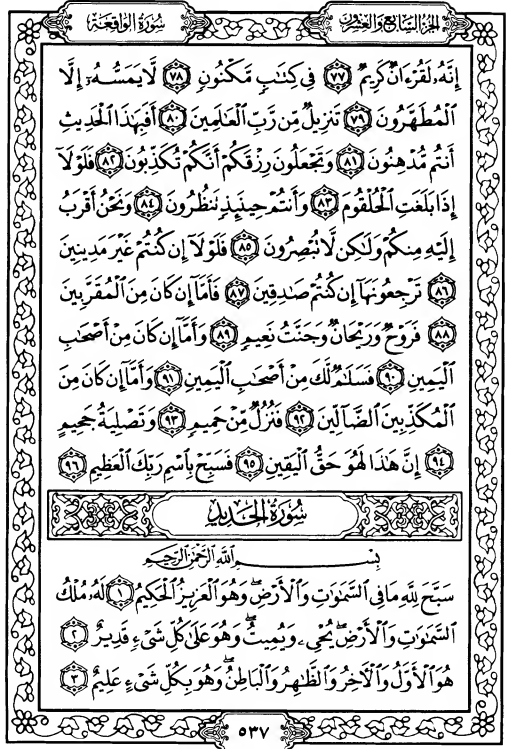 الجزء السابع والعشرون
سورة الواقعة
إِنَّهُۥ لَقُرْءَانٌ كَرِيمٌ ﴿٧٧﴾ فِى كِتَٰبٍ مَّكْنُونٍ ﴿٧٨﴾ لَّا يَمَسُّهُۥٓ إِلَّا
ٱلْمُطَهَّرُونَ ﴿٧٩﴾ تَنزِيلٌ مِّن رَّبِّ ٱلْعَٰلَمِينَ ﴿٨٠﴾ أَفَبِهَٰذَا ٱلْحَدِيثِ
أَنتُم مُّدْهِنُونَ ﴿٨١﴾ وَتَجْعَلُونَ رِزْقَكُمْ أَنَّكُمْ تُكَذِّبُونَ ﴿٨٢﴾ فَلَوْلَآ
إِذَا بَلَغَتِ ٱلْحُلْقُومَ ﴿٨٣﴾ وَأَنتُمْ حِينَئِذٍ تَنظُرُونَ ﴿٨٤﴾ وَنَحْنُ أَقْرَبُ
إِلَيْهِ مِنكُمْ وَلَٰكِن لَّا تُبْصِرُونَ ﴿٨٥﴾ فَلَوْلَآ إِن كُنتُمْ غَيْرَ مَدِينِينَ
﴿٨٦﴾ تَرْجِعُونَهَآ إِن كُنتُمْ صَٰدِقِينَ ﴿٨٧﴾ فَأَمَّآ إِن كَانَ مِنَ ٱلْمُقَرَّبِينَ
﴿٨٨﴾ فَرَوْحٌ وَرَيْحَانٌ وَجَنَّتُ نَعِيمٍ ﴿٨٩﴾ وَأَمَّآ إِن كَانَ مِنْ أَصْحَٰبِ
ٱلْيَمِينِ ﴿٩٠﴾ فَسَلَٰمٌ لَّكَ مِنْ أَصْحَٰبِ ٱلْيَمِينِ ﴿٩١﴾ وَأَمَّآ إِن كَانَ مِنَ
ٱلْمُكَذِّبِينَ ٱلضَّآلِّينَ ﴿٩٢﴾ فَنُزُلٌ مِّنْ حَمِيمٍ ﴿٩٣﴾ وَتَصْلِيَةُ جَحِيمٍ
﴿٩٤﴾ إِنَّ هَٰذَا لَهُوَ حَقُّ ٱلْيَقِينِ ﴿٩٥﴾ فَسَبِّحْ بِٱسْمِ رَبِّكَ ٱلْعَظِيمِ ﴿٩٦﴾
سُورَةُ الحَدِيدِ
بِسْمِ ٱللَّهِ ٱلرَّحْمَٰنِ ٱلرَّحِيمِ
سَبَّحَ لِلَّهِ مَا فِى ٱلسَّمَٰوَٰتِ وَٱلْأَرْضِ ۖ وَهُوَ ٱلْعَزِيزُ ٱلْحَكِيمُ ﴿١﴾ لَهُۥ مُلْكُ
ٱلسَّمَٰوَٰتِ وَٱلْأَرْضِ ۖ يُحْىِۦ وَيُمِيتُ ۖ وَهُوَ عَلَىٰ كُلِّ شَىْءٍ قَدِيرٌ ﴿٢﴾
هُوَ ٱلْأَوَّلُ وَٱلْءَاخِرُ وَٱلظَّٰهِرُ وَٱلْبَاطِنُ ۖ وَهُوَ بِكُلِّ شَىْءٍ عَلِيمٌ ﴿٣﴾
٥٣٧